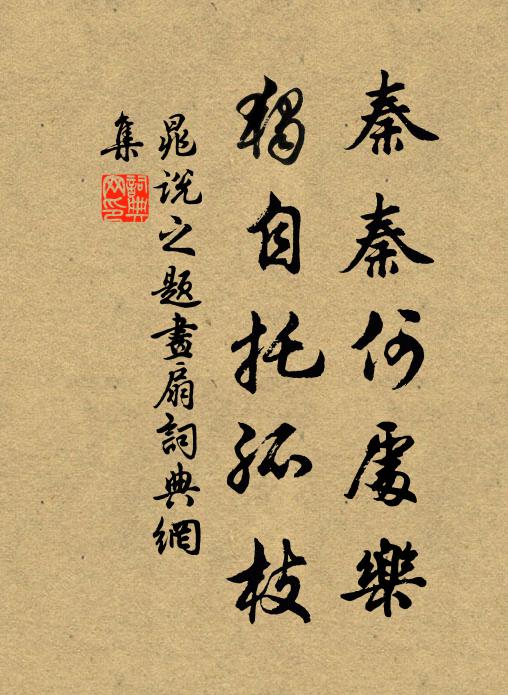 秦秦何處樂
獨自托孤枝
晁說之題畫扇詞典網
集
詞典
網印